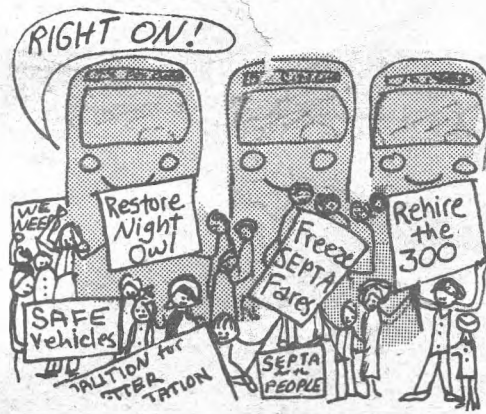 RIGHT ON!
WE
NEED
Restore
Night
Owl
Freeze
SEPTA
Fares
Rehire
the
300
SAFE
Vehicles
for
TTER
TATION
SEPTA
for the
PEOPLE